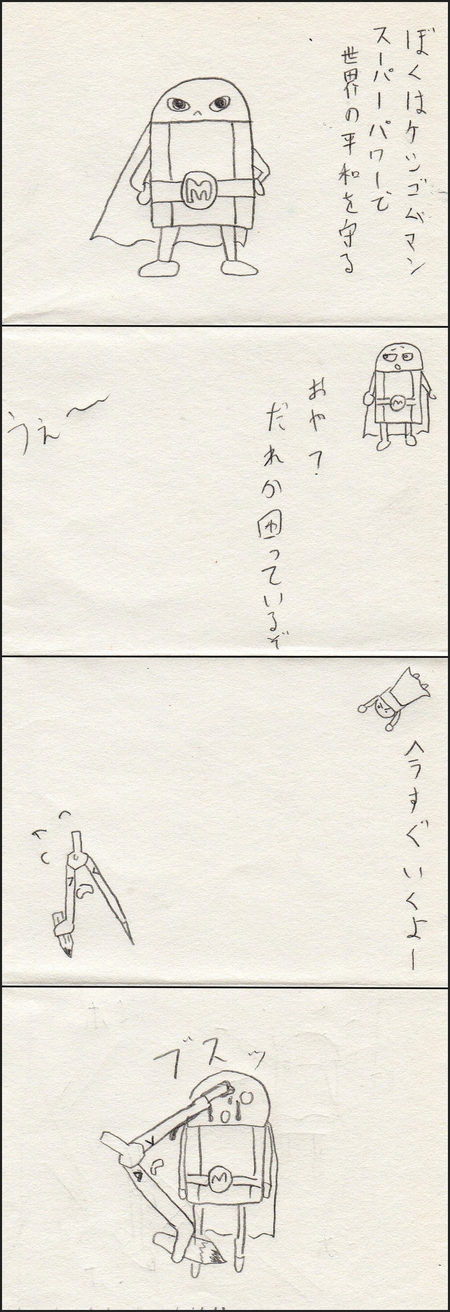 ぼくはケシゴムマン
スーパーパワーで
世界の平和を守る
M
おや?
だれか困っているぞ
うえ〜
M
今すぐいくよー
ブスッ
M